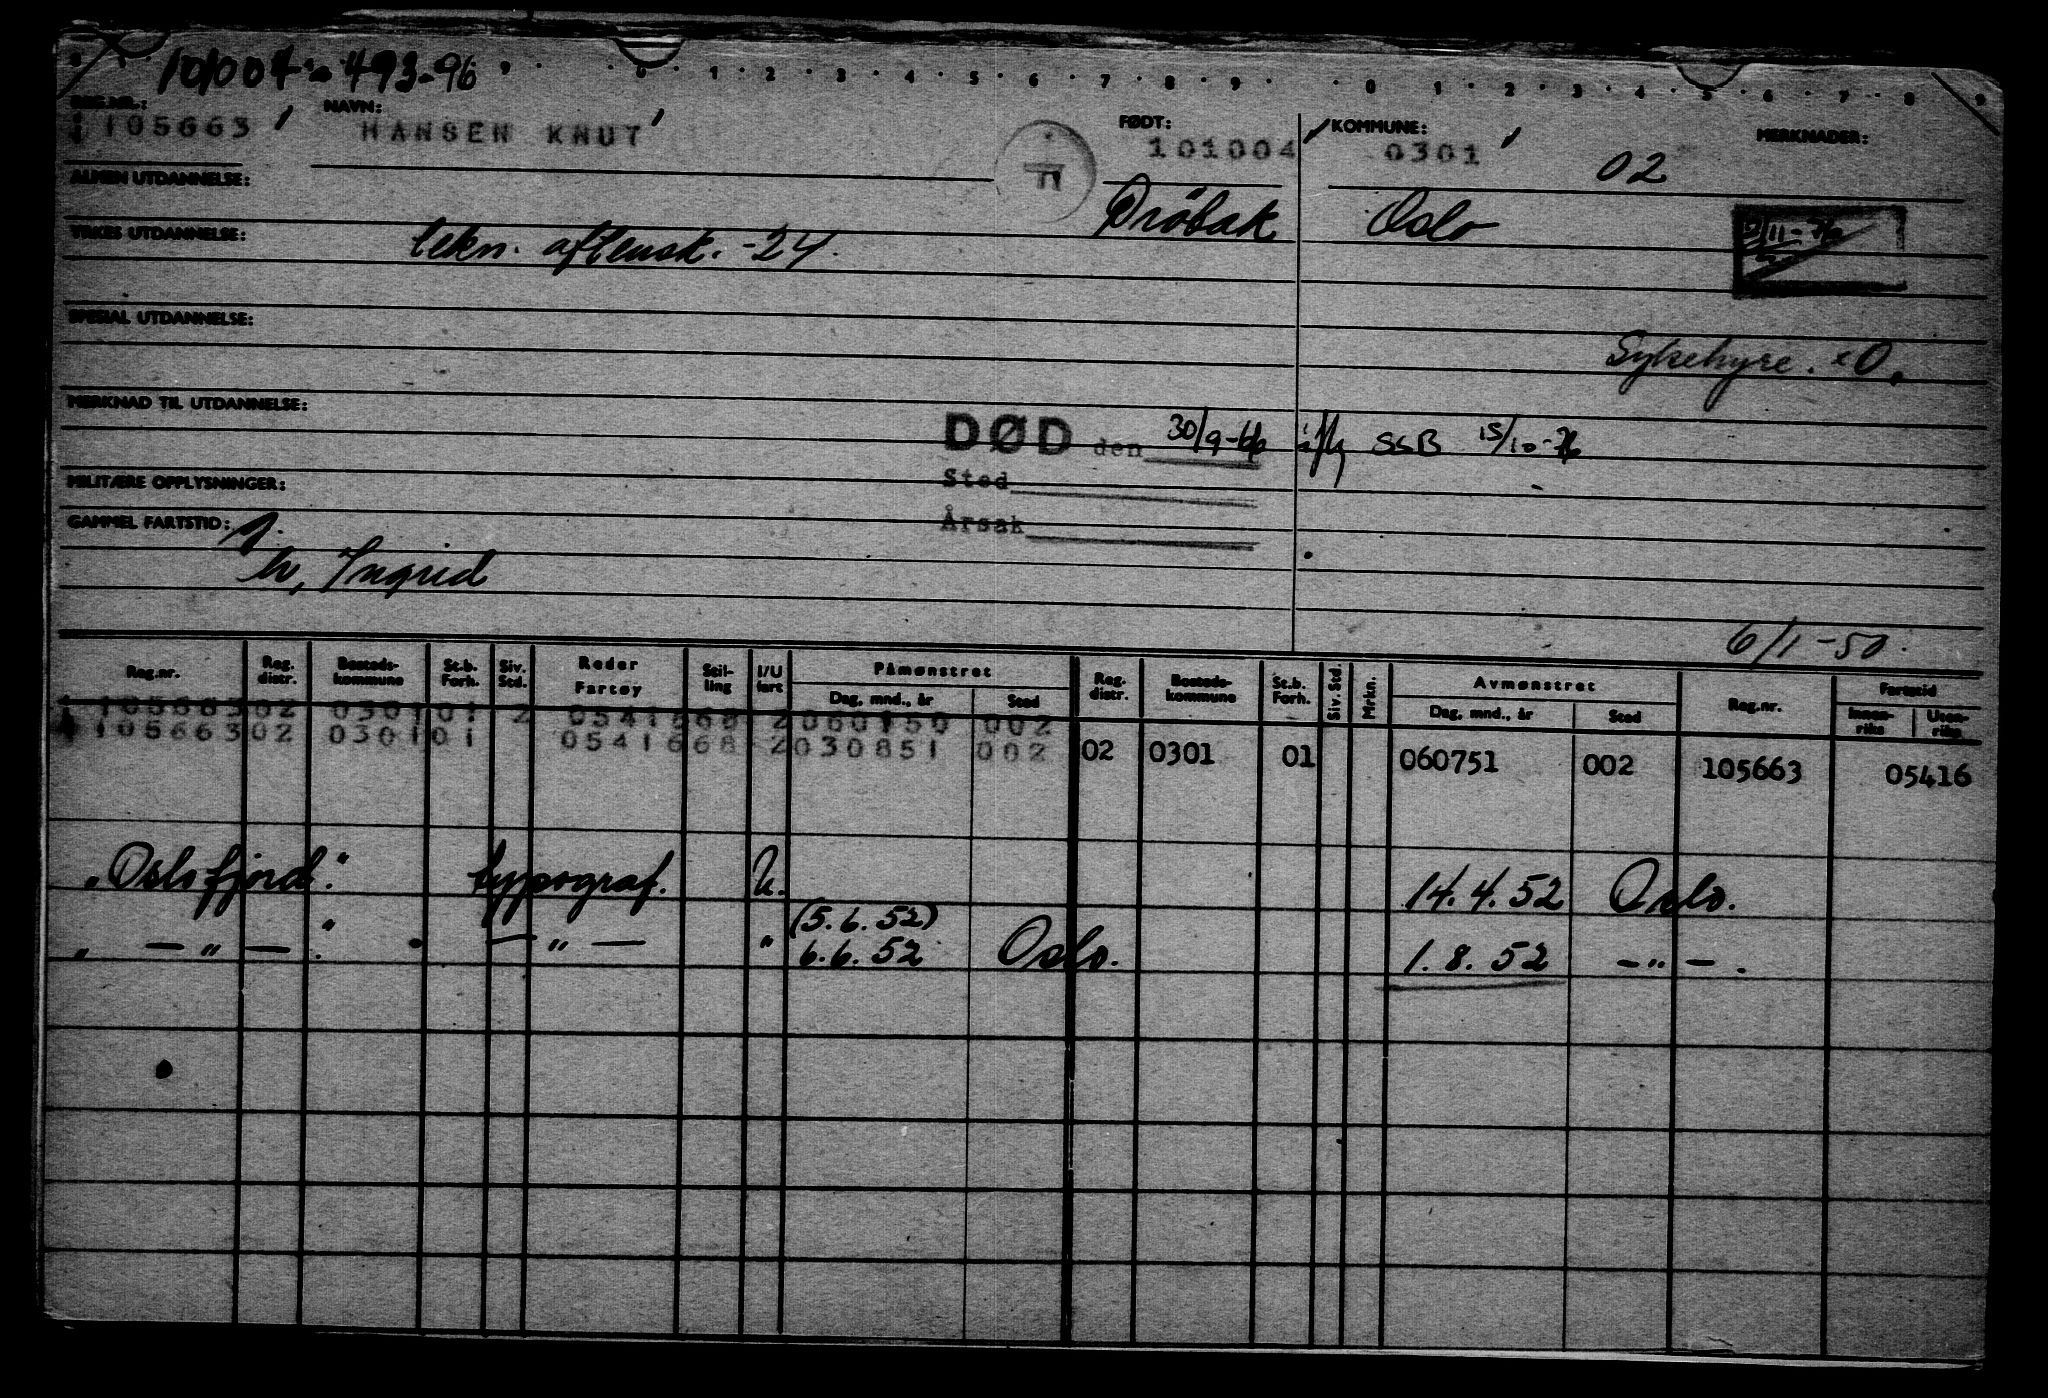 101004 - 493-96
9 . . 0 . 1 . 2 . 3 . 4 . 5 . 6 . 7 . 8 . 9 . . 0 . 1 . 2 . 3 . 4 . 5 . 6 . 7 . 8 9
REG.NR.: NAVN: FØDT: KOMMUNE: MERKNADER:
105663 HANSEN KNUT 101004 0301 02
ALMEN UTDANNELSE: Drøbak Oslo
YRKES UTDANNELSE: tekn. aftensk. -24.
SPESIAL UTDANNELSE:
Sykehyre. x0.
MERKNAD TIL UTDANNELSE:
DØD den 30/9-66 SSB 15/10-76
Sted
MILITÆRE OPPLYSNINGER:
Årsak
GAMMEL FARTSTID:
hv, Ingrid
6/1-50.
Reg.nr. Reg. distr. Bosteds-kommune St.b. Forh. Siv. Std. Reder Fartøy Stil-ling I/U fart Påmønstret Reg. distr. Bosteds-kommune St.b. Forh. Siv. Std. Mrkn. Avmønstret Reg.nr. Fartstid
Dag, mnd., år Sted Dag, mnd., år Sted Innen-riks Uten-riks
105663 02 0301 01 2 0541668 2 060150 002
105663 02 0301 01 0541668 2 030851 002 02 0301 01 060751 002 105663 05416
"Oslofjord." typograf. U. 14.4.52 Oslo.
(5.6.52)
" — " — " — " — " 6.6.52 Oslo. 1.8.52 — " — .